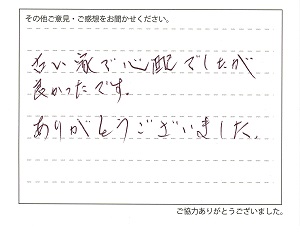 その他ご意見・ご感想をお聞かせください。
古い家で心配でしたが
良かったです。
ありがとうございました。
ご協力ありがとうございました。